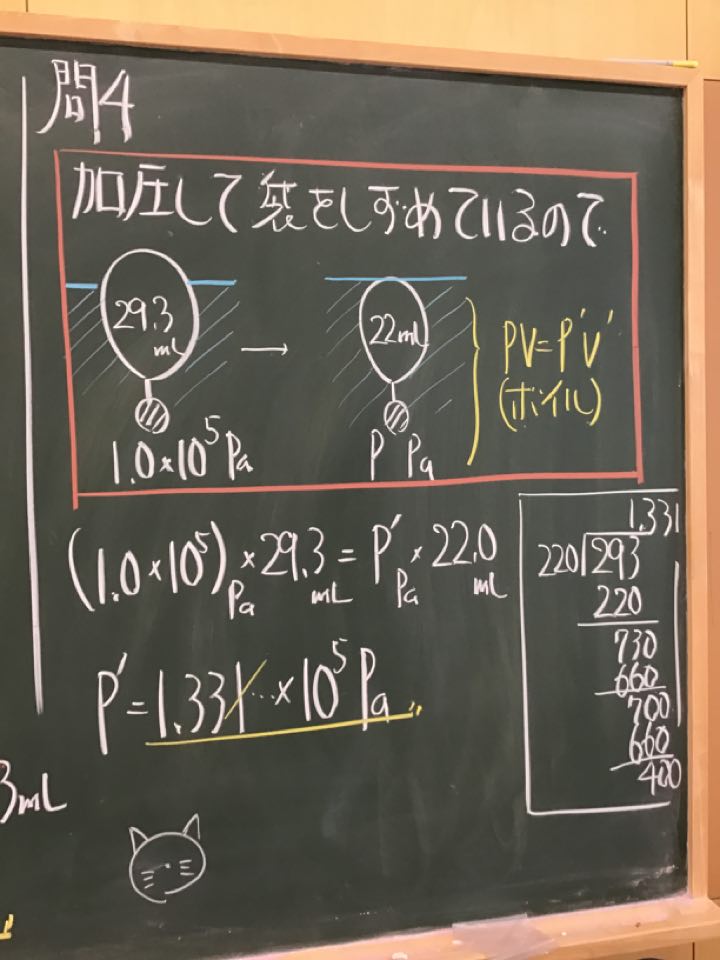 問4
加圧して袋をしずめているので
29.3 mL → 22mL
1.0×10⁵Pa P' Pa
PV=P'V'
(ボイル)
(1.0×10⁵)Pa×29.3mL=P'Pa×22.0mL
P'=1.331…×10⁵Pa
1.331
220)293
220
730
660
700
660
400
3mL